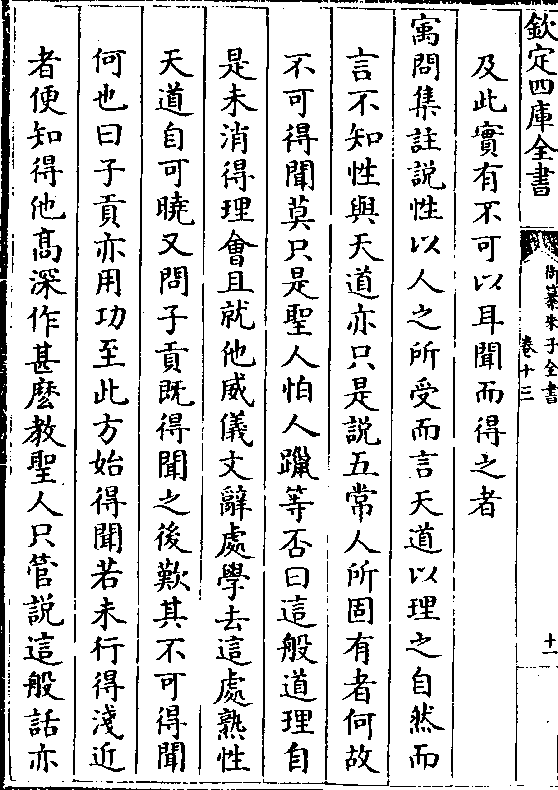 欽定四庫全書
御纂朱子全書
卷十三
十一
及此實有不可以耳聞而得之者
寓問集註説性以人之所受而言天道以理之自然而
言不知性與天道亦只是説五常人所固有者何故
不可得聞莫只是聖人怕人躐等否曰這般道理自
是未消得理會且就他威儀文辭處學去這處熟性
天道自可曉又問子貢既得聞之後歎其不可得聞
何也曰子貢亦用功至此方始得聞若未行得淺近
者便知得他髙深作甚麽教聖人只管説這般話亦